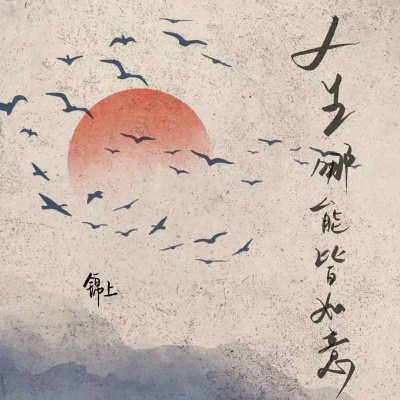 人生哪能皆如意
锦上